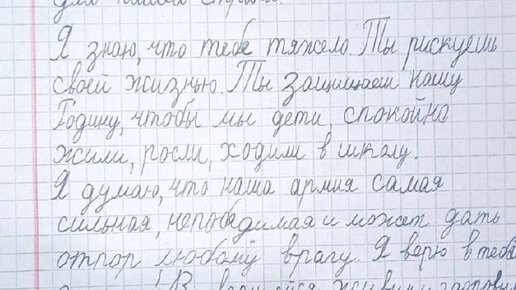 для нашей страны.
Я знаю, что тебе тяжело. Ты рискуешь
своей жизнью. Ты защищаеш нашу
Родину, чтобы мы дети, спокойно
жили, росли, ходили в школу.
Я думаю, что наша армия самая
сильная, непобедимая и может дать
отпор любому врагу. Я верю в тебя
живым и здоровым